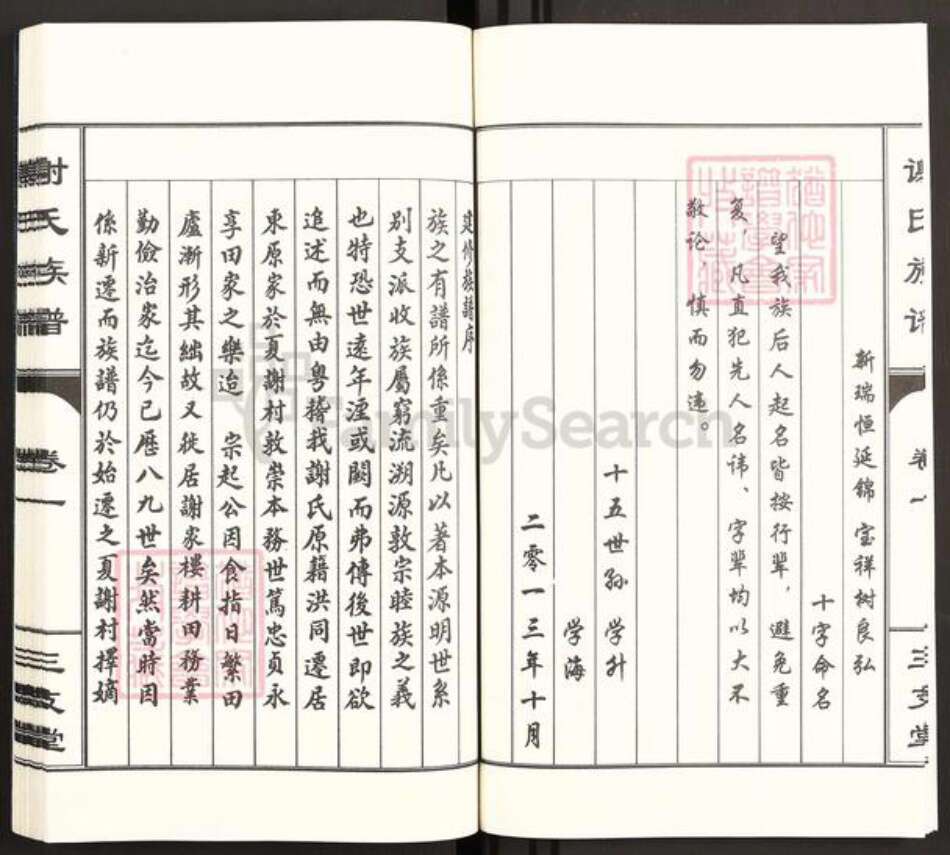 新瑞恒延锦 宝祥树良弘
十字命名
望我族后人起名皆按行辈，避免重
复，凡直犯先人名讳、字辈均以大不
敬论 慎而勿违。
十五世孙 学升
学海
二零一三年十月
谢氏族谱
卷一
三友堂
族之有譜所係重矣凡以著本源明世系
别支派收族屬窮流溯源敦宗睦族之義
也特恐世遠年湮或闕而弗傳後世即欲
追述而無由粤稽我謝氏原籍洪同遷居
東原家於夏謝村敦崇本務世篤忠貞永
享田家之樂迨 宗起公因食指日繁田
廬漸形其絀故又徙居謝家樓耕田務業
勤儉治家迄今已歷八九世矣然當時因
係新遷而族譜仍於始遷之夏謝村擇嫡
氏族譜
卷一
FamilySearch